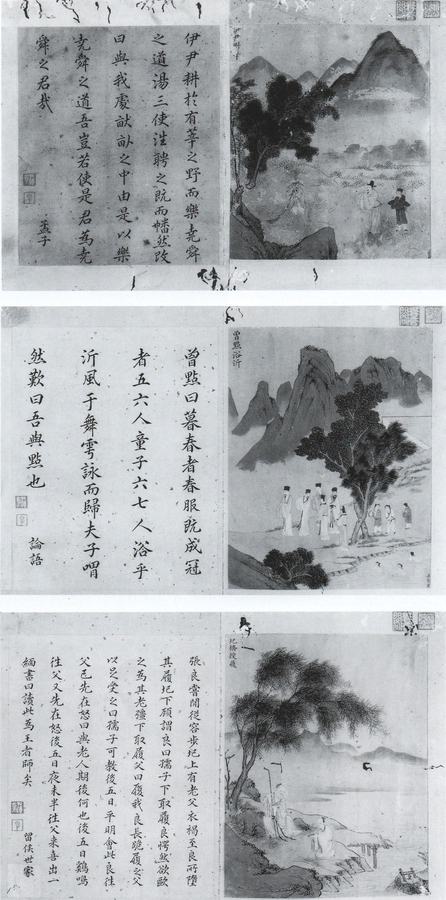 伊尹耕於有莘之野而樂堯舜
之道湯三使往聘之既而幡然改
曰與我處畎畝之中由是以樂
堯舜之道吾豈若使是君為堯
舜之君哉
孟子
曾點浴沂
曾點曰暮春者春服既成冠
者五六人童子六七人浴乎
沂風于舞雩詠而歸夫子喟
然歎曰吾與點也
論語
圯橋授履
張良嘗閒從容步圯上有老父衣褐至良所墮
其履圯下顧謂良曰孺子下取履良愕然欲毆
之為其老彊下取履父曰履我良長跪履之父
以足受之曰孺子可教後五日平明會此良往
父已先在怒曰與老人期後何也後五日鷄鳴
往父又先在怒後五日夜未半往父來喜出一
編書曰讀此為王者師矣
留侯世家